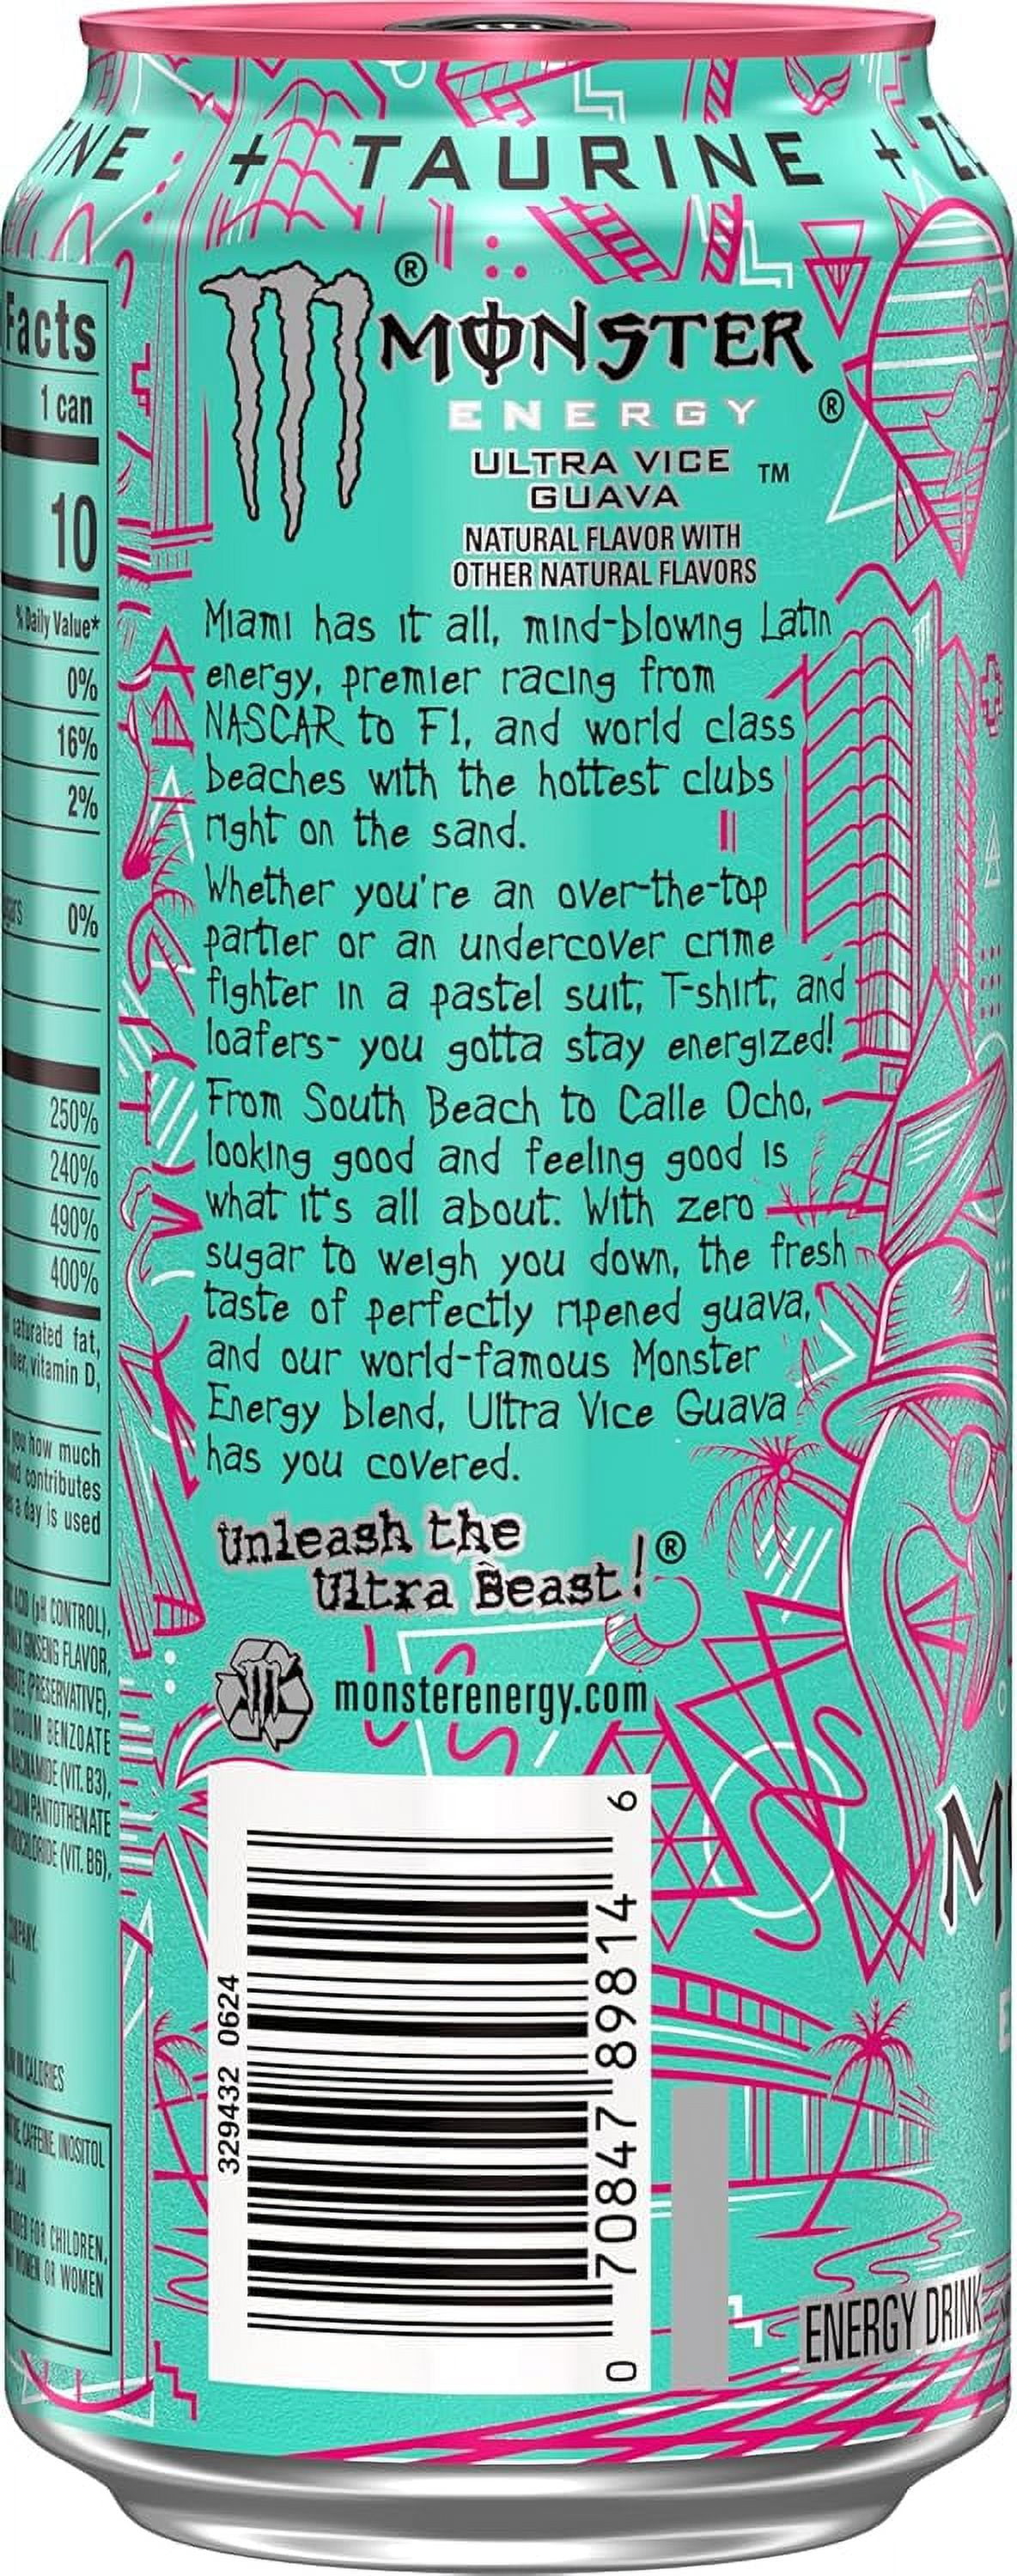 + TAURINE +
Facts
1 can
10
% Daily Value*
0%
16%
2%
0%
250%
240%
490%
400%
saturated fat,
vitamin D,
you how much
contributes
a day is used
(pH CONTROL),
GINSENG FLAVOR,
(PRESERVATIVE),
BENZOATE
(VIT. B3),
PANTOTHENATE
(VIT. B6),
CALORIES
CAFFEINE, INOSITOL
CAN
FOR CHILDREN,
WOMEN OR WOMEN
®
MONSTER
ENERGY ®
ULTRA VICE ™
GUAVA
NATURAL FLAVOR WITH
OTHER NATURAL FLAVORS
Miami has it all, mind-blowing Latin
energy, premier racing from
NASCAR to F1, and world class
beaches with the hottest clubs
right on the sand.
Whether you're an over-the-top
partier or an undercover crime
fighter in a pastel suit, T-shirt, and
loafers- you gotta stay energized!
From South Beach to Calle Ocho,
looking good and feeling good is
what it's all about. With zero
sugar to weigh you down, the fresh
taste of perfectly ripened guava,
and our world-famous Monster
Energy blend, Ultra Vice Guava
has you covered.
Unleash the
Ultra Beast!®
monsterenergy.com
329432 0624
0 70847 89814 6
ENERGY DRINK